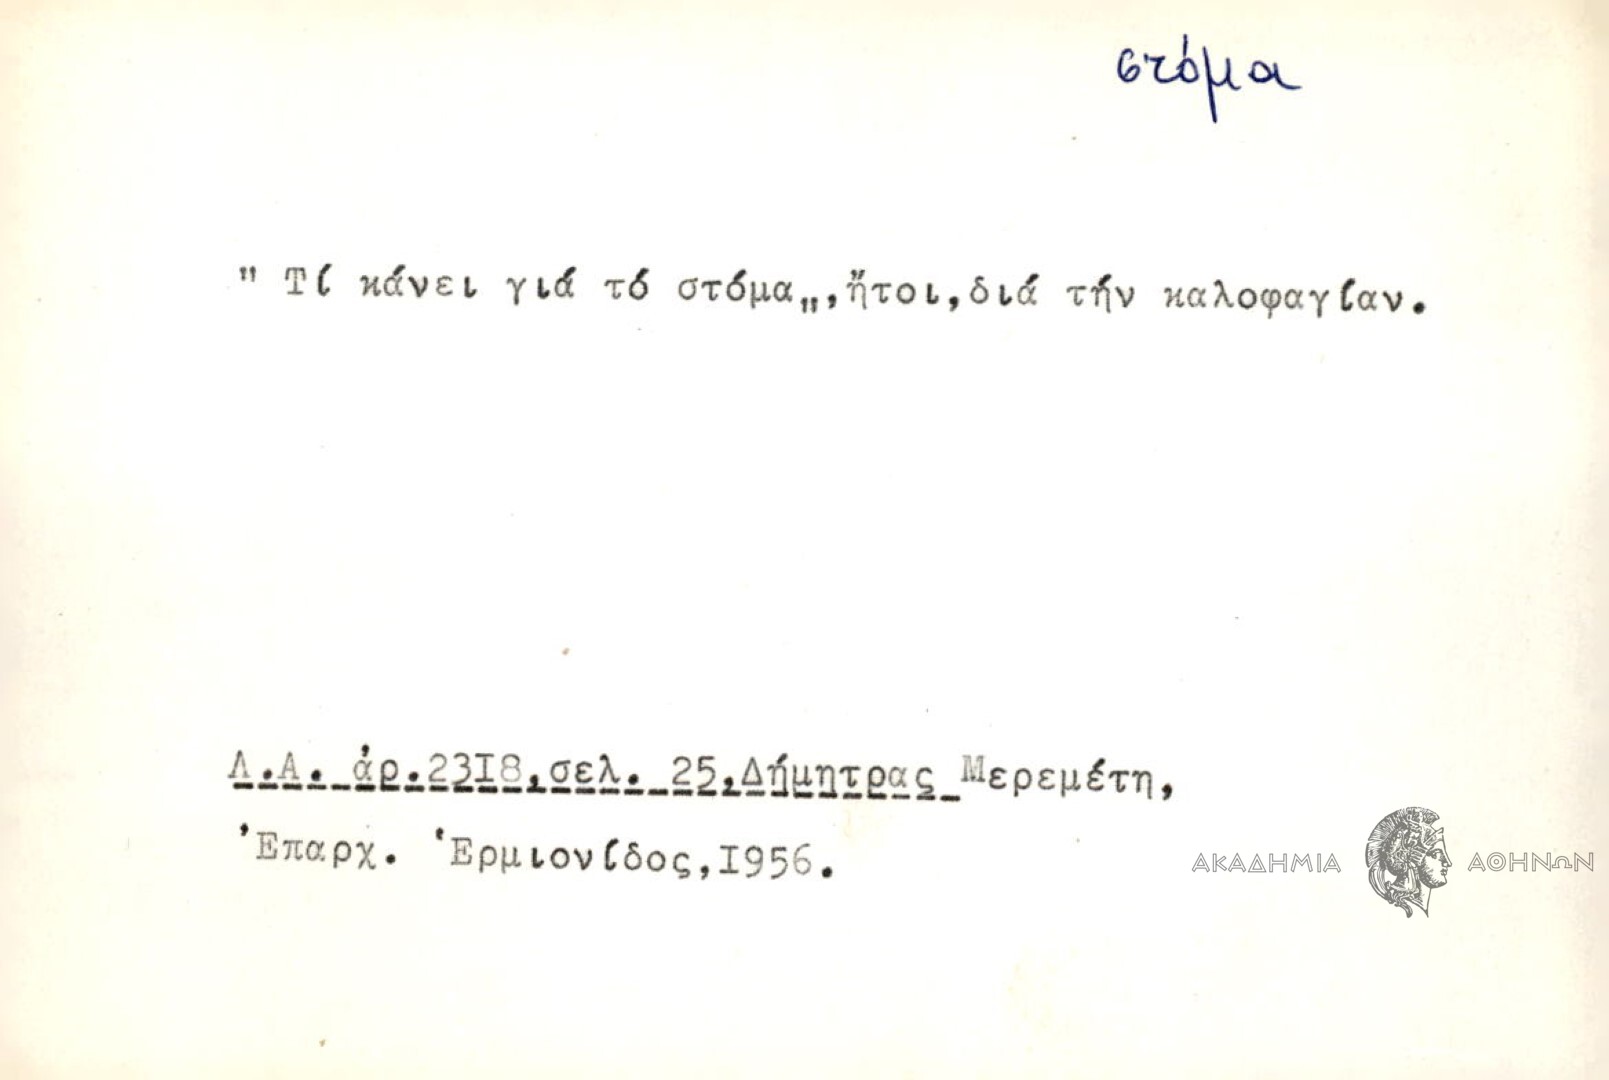 στόμα
" Τί κάνει γιά τό στόμα„,ἤτοι,διά τήν καλοφαγίαν.
Λ.Α. ἀρ.2318,σελ. 25,Δήμητρας Μερεμέτη,
Ἐπαρχ. Ἑρμιονίδος,1956.
ΑΚΑΔΗΜΙΑ ΑΘΗΝΩΝ